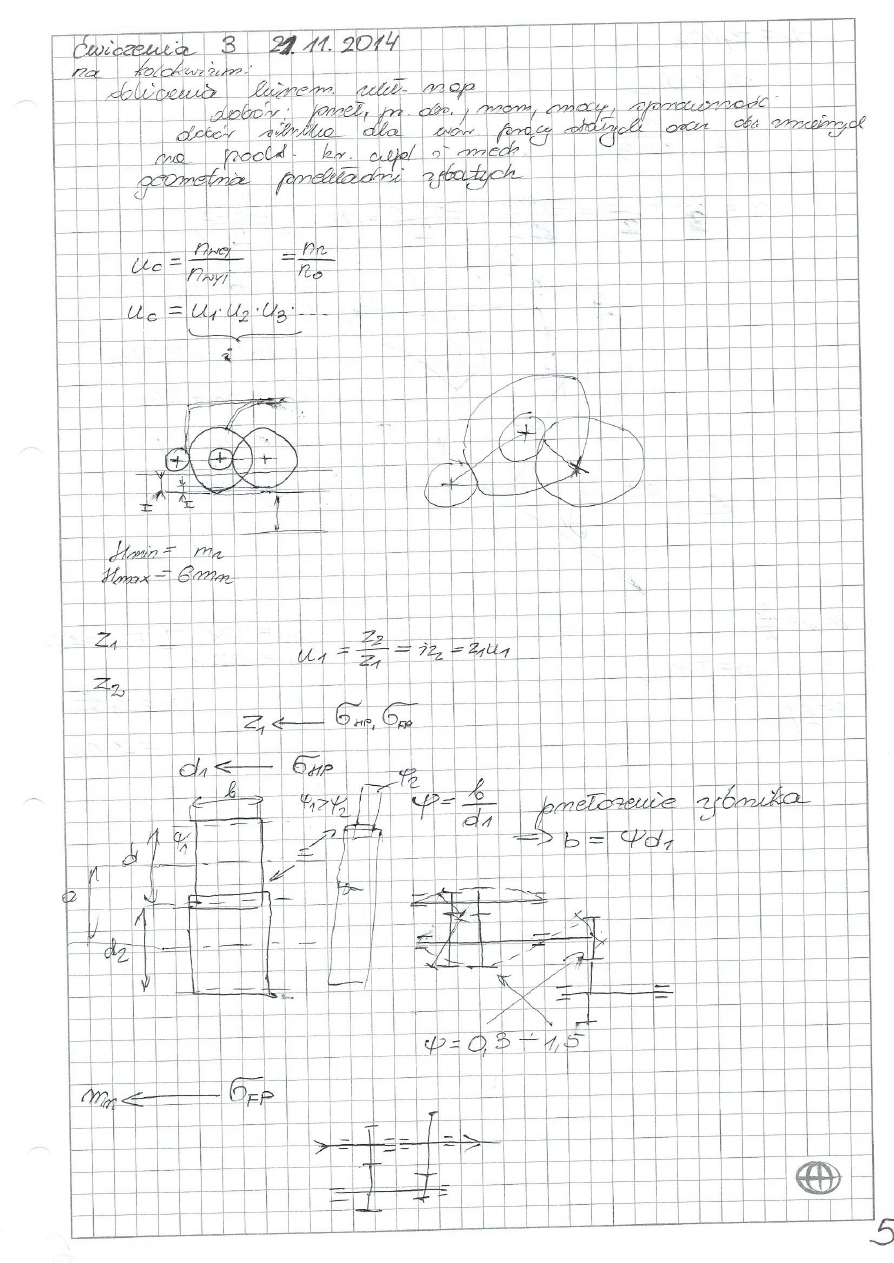 Ćwiczenia 3 21.11.2014
na kolokwium:
obliczenia kinem. ukł. nap
dobór: przeł, pr. obr., mom, mocy, sprawność
dobór silnika dla war pracy stałych oraz dla zmiennych
na podst. kr. ciepl i mech
geometria przekładni zębatych
uc = nwej/nwyj = nn/no
uc = u1·u2·u3·...
i
I I
Hmin = mn
Hmax = 6mn
Z1
u1 = Z2/Z1 = iz2 = z1u1
Z2
Z1 ← σHP, σFP
d1 ← σHP
b
φ2
φ1>φ2
ψ = b/d1
przełożenie zębnika
⇒ b = ψd1
φ1
d
a
d2
ψ = 0,3 ÷ 1,5
mn ← σFP
5